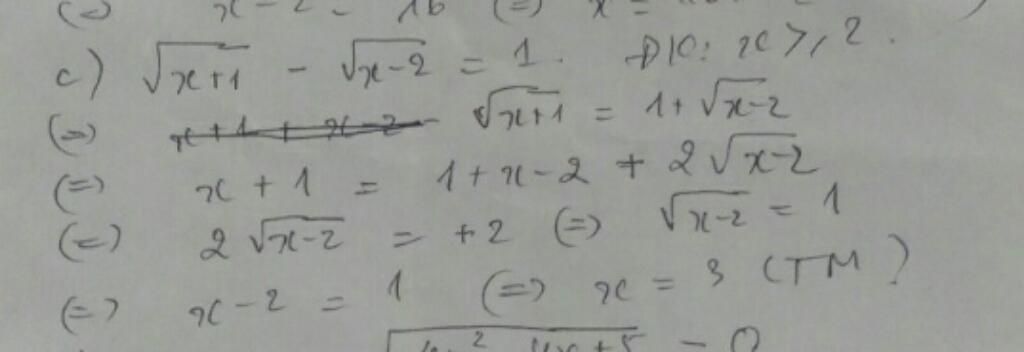 (=) x - 2 = 16 (=) x =
c) √x+1 - √x-2 = 1. ĐK: x ⩾ 2.
(=) √x+1 = 1 + √x-2
(=) x + 1 = 1 + x - 2 + 2√x-2
(=) 2√x-2 = +2 (=) √x-2 = 1
(=) x - 2 = 1 (=) x = 3 (TM)